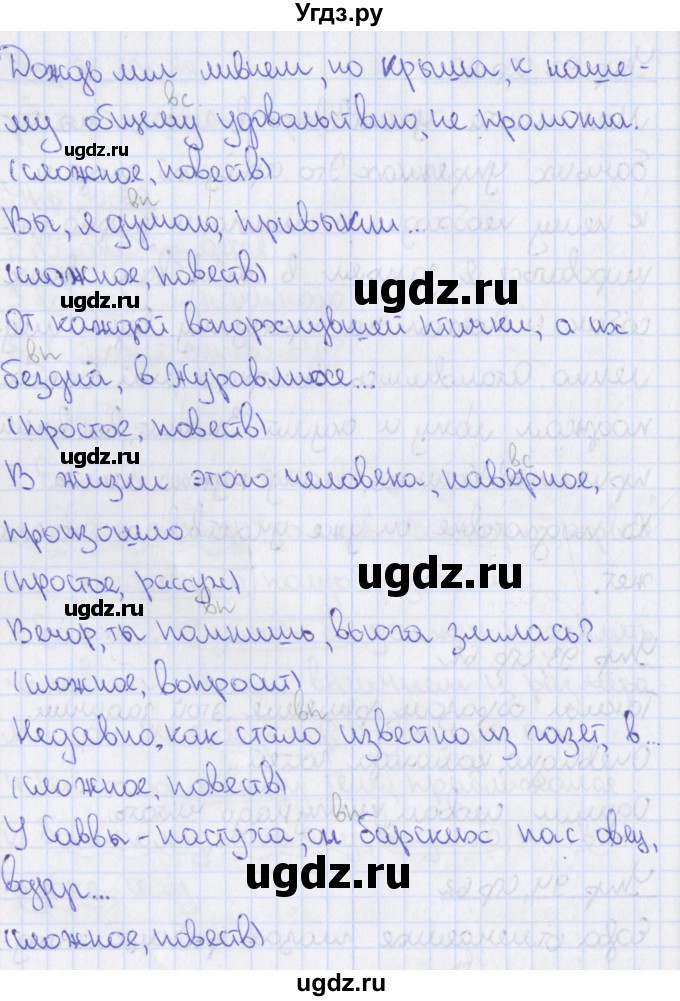 Угдз.ру
Дождь лил ливнем, но крыша, к наше-
вс
му общему удовольствию, не промокла.
(сложное, повеств)
вп
Вы, я думаю, привыкли...
(сложное, повеств)
От каждой вапорхнувшей птички, а их
вп
бездна, в журавлиное...
(простое, повеств)
вс
В жизни этого человека, наверное,
произошло
(простое, рассуж)
вп
Вечор, ты помнишь, вьюга злилась?
(сложное, вопросит)
вп
Недавно, как стало известно из газет, в...
(сложное, повеств)
вп
У Саввы-пастуха, он барских пас овец,
вдруг...
(сложное, повеств)
ugdz.ru
ugdz.ru
ugdz.ru
ugdz.ru
ugdz.ru
ugdz.ru
ugdz.ru
ugdz.ru
ugdz.ru
ugdz.ru
ugdz.ru
ugdz.ru